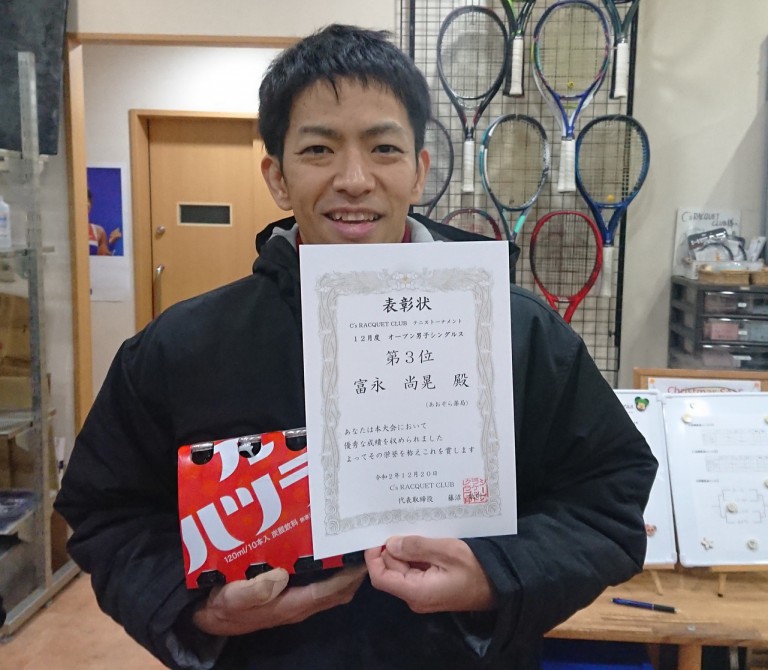 表彰状
C's RACQUET CLUB テニストーナメント
12月度 オープン男子シングルス
第3位
富永 尚晃 殿
(あおぞら薬局)
あなたは本大会において
優秀な成績を収められました
よってその栄誉を称えこれを賞します
令和2年12月20日
C's RACQUET CLUB
代表取締役 藤沼
ハツラ
120ml/10本入 炭酸飲料
C's RACQUET
CLUB
Christmas